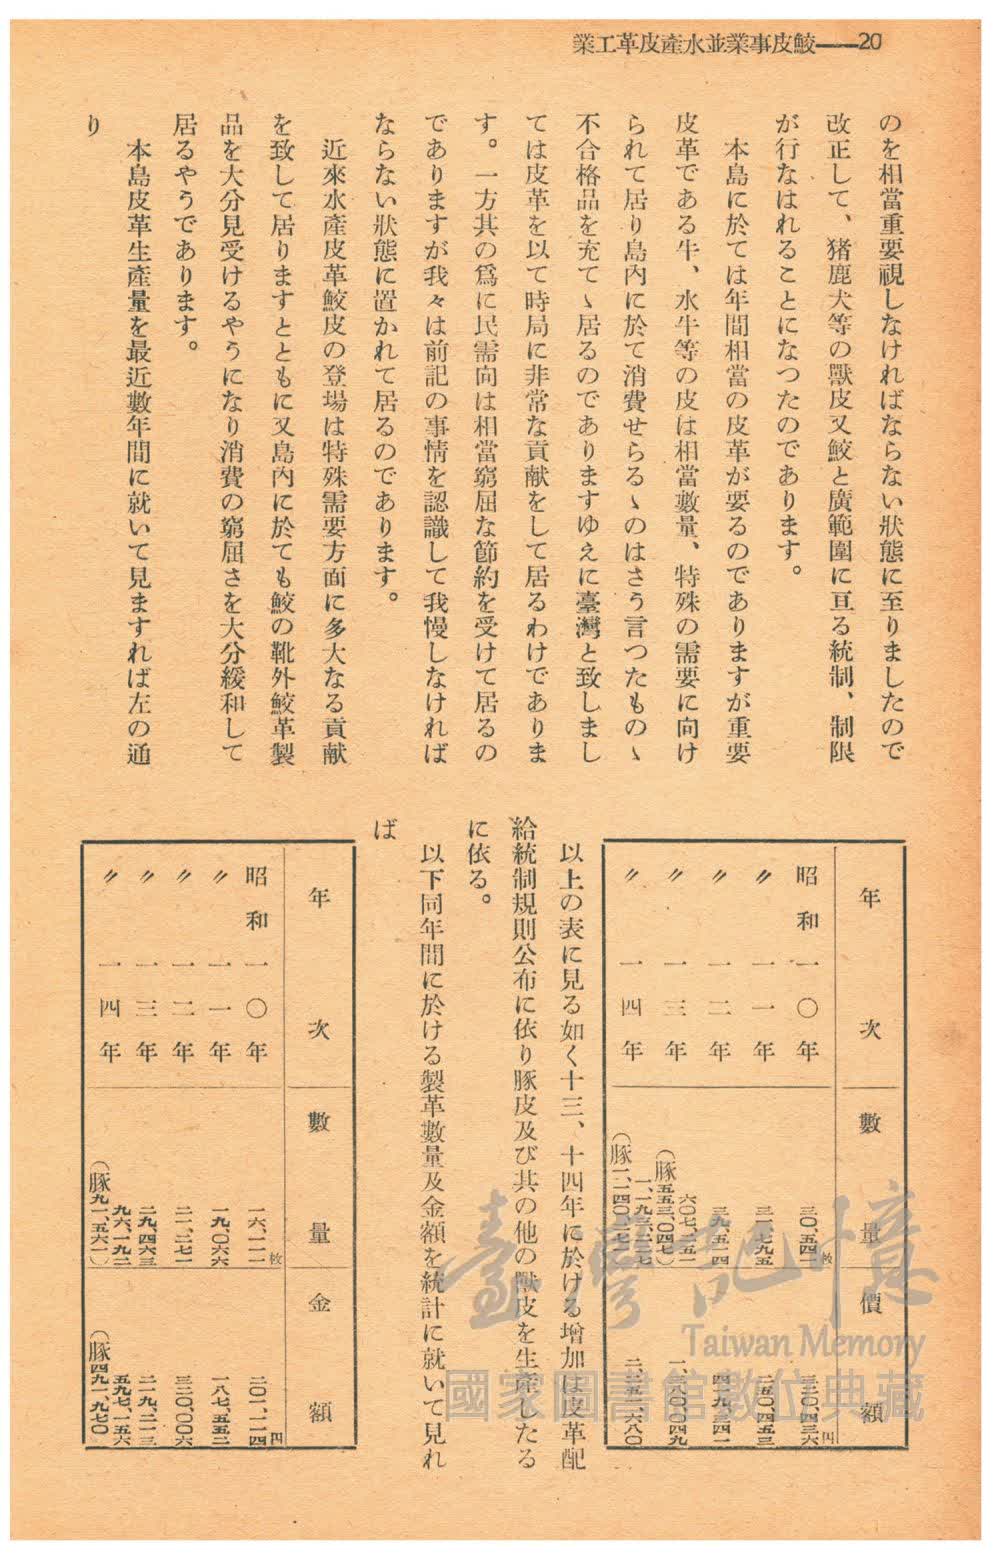 業工革皮產水並業事皮鮫——20
のを相當重要視しなければならない狀態に至りましたので
改正して、猪鹿犬等の獸皮又鮫と廣範圍に亘る統制、制限
が行なはれることになつたのであります。
本島に於ては年間相當の皮革が要るのでありますが重要
皮革である牛、水牛等の皮は相當數量、特殊の需要に向け
られて居り島內に於て消費せらるゝのはさう言つたものゝ
不合格品を充てゝ居るのでありますゆえに臺灣と致しまし
ては皮革を以て時局に非常な貢献をして居るわけでありま
す。一方其の爲に民需向は相當窮屈な節約を受けて居るの
でありますが我々は前記の事情を認識して我慢しなければ
ならない狀態に置かれて居るのであります。
近來水產皮革鮫皮の登場は特殊需要方面に多大なる貢献
を致して居りますとともに又島內に於ても鮫の靴外鮫革製
品を大分見受けるやうになり消費の窮屈さを大分緩和して
居るやうであります。
本島皮革生產量を最近數年間に就いて見ますれば左の通
り
年次 數量 價額
昭和一〇年 三〇、五四一枚 三二〇、四三六円
〃一一年 三一、七九五 二五〇、四五三
〃一二年 三九、五四一 四一九、三四一
〃一三年 六〇七、二五一 (豚五五三、〇四七) 一、三八〇、〇四九
〃一四年 一、一九三、二二七 (豚一、一四〇、二七一) 二、二五一、六八〇
以上の表に見る如く十三、十四年に於ける增加は皮革配
給統制規則公布に依り豚皮及び其の他の獸皮を生產したる
に依る。
以下同年間に於ける製革數量及金額を統計に就いて見れ
ば
年次 數量 金額
昭和一〇年 一六、二一一枚 二〇一、一一四円
〃一一年 一九、〇六六 一八七、五五二
〃一二年 二一、二七一 三二〇、〇〇六
〃一三年 二九、四六三 二一九、二一三
〃一四年 九六、一九二 (豚九一、五六一) 五九七、一五六 (豚四九一、九七〇)
臺灣記憶
Taiwan Memory
國家圖書館數位典藏